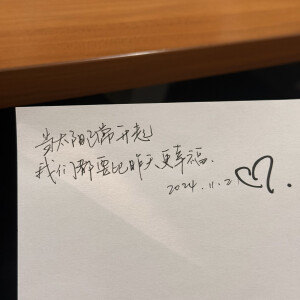 当太阳照常升起
我们都要比昨天更幸福.
2024.11.2